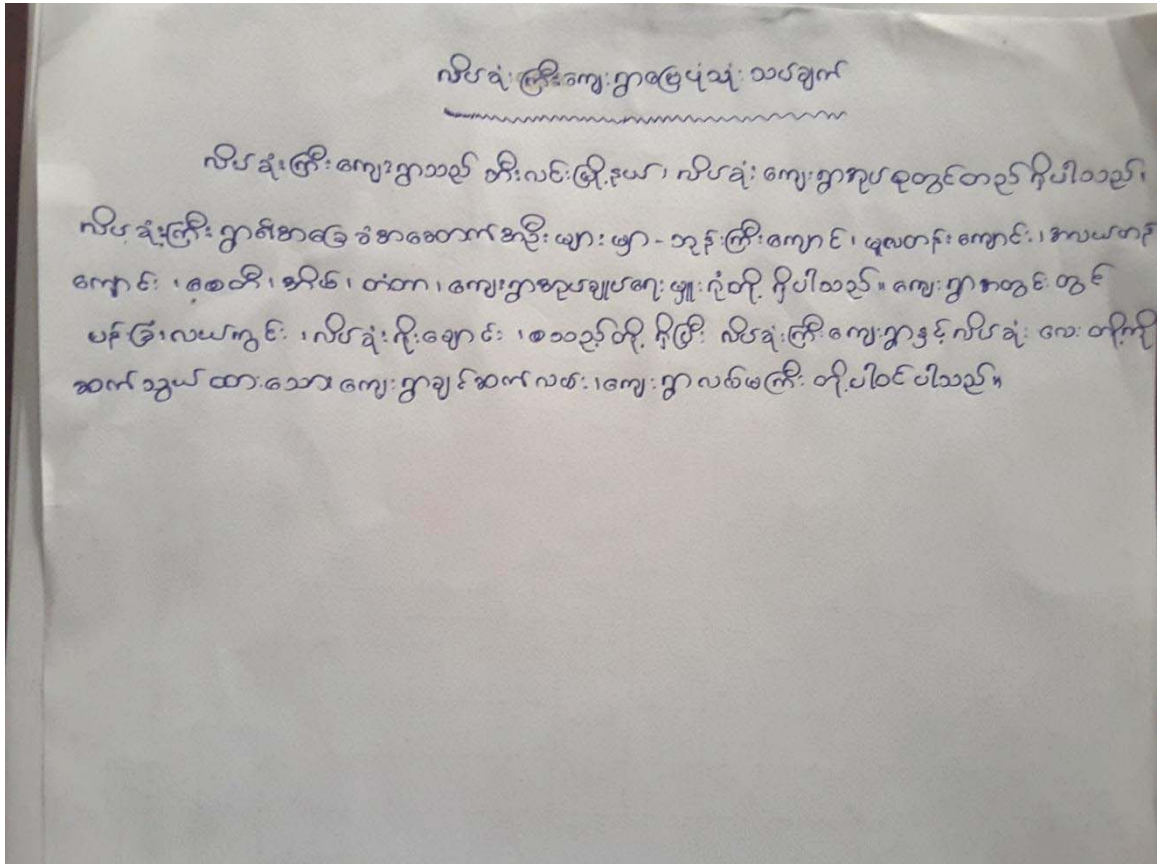 လိပ်ခုံးကြီးကျေးရွာမြေပုံသုံးသပ်ချက်
လိပ်ခုံးကြီးကျေးရွာသည် ထီးလင်းမြို့နယ်၊ လိပ်ခုံးကျေးရွာအုပ်စုတွင်တည်ရှိပါသည်၊
လိပ်ခုံးကြီးရွာ၏အခြေခံအဆောက်အဦးများမှာ - ဘုန်းကြီးကျောင်၊ မူလတန်းကျောင်း၊ အလယ်တန်
ကျောင်း၊ စေတီ၊ အိမ်၊ တံတာ၊ ကျေးရွာအုပ်ချုပ်ရေးမှူးရုံတို့ ရှိပါသည်။ ကျေးရွာအတွင်းတွင်
ပန်းခြံ၊ လယ်ကွင်း၊ လိပ်ခုံးရိုးချောင်း၊ စသည့်တို့ ရှိပြီး လိပ်ခုံးကြီးကျေးရွာနှင့် လိပ်ခုံးလေးတို့ကို
ဆက်သွယ်ထားသော ကျေးရွာချင်ဆက်လမ်း၊ ကျေးရွာလမ်မကြီး တို့ပါဝင်ပါသည်။